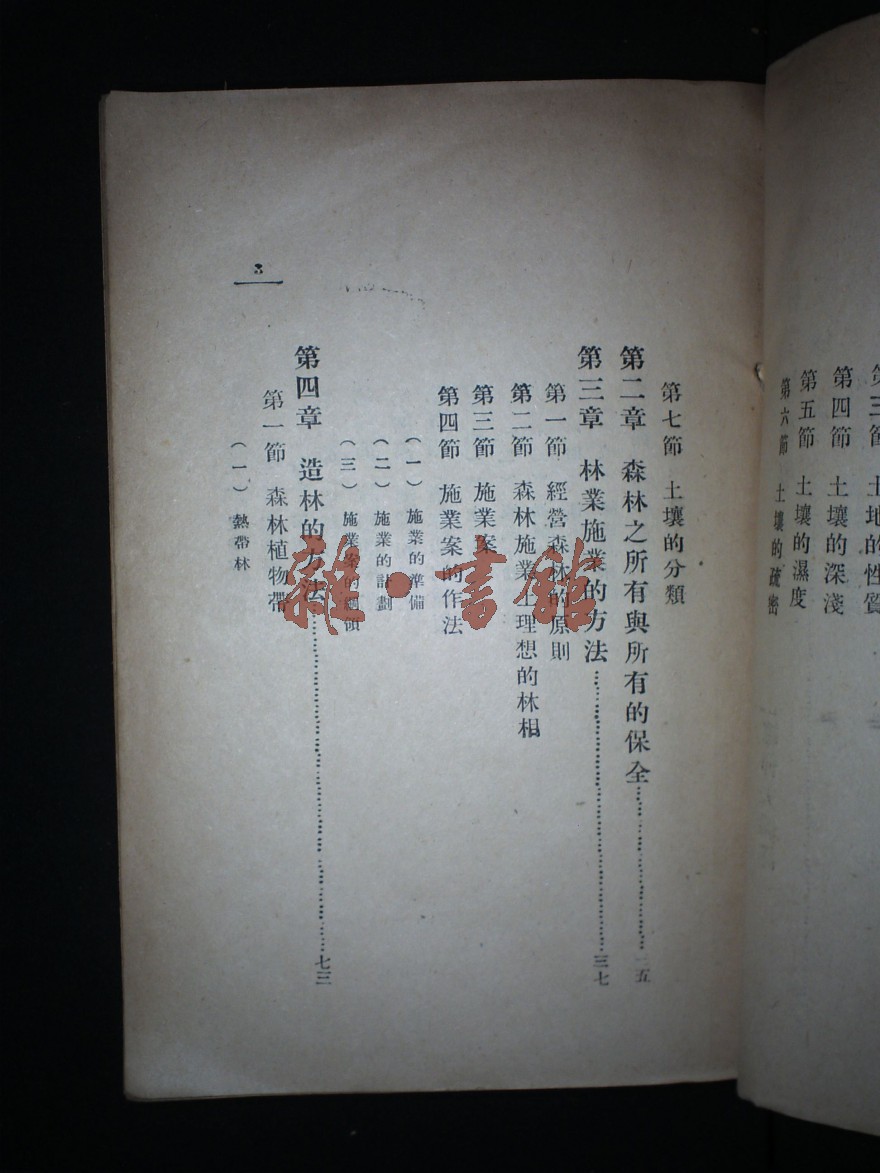 第三節 土地的性質
第四節 土壤的深淺
第五節 土壤的濕度
第六節 土壤的疏密
第七節 土壤的分類
第二章 森林之所有與所有的保全……二五
第三章 林業施業的方法……三七
第一節 經營森林的原則
第二節 森林施業上理想的林相
第三節 施業案
第四節 施業案的作法
（一）施業的準備
（二）施業的計劃
（三）施業案的綱領
第四章 造林的方法……七三
第一節 森林植物帶
（一）熱帶林
3
雜·書館